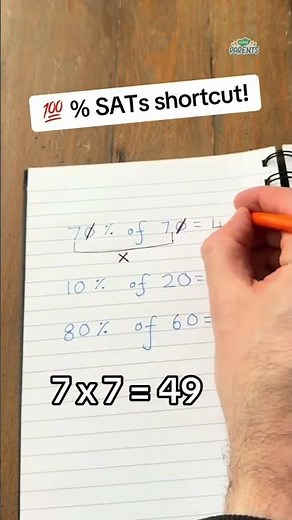 PARENTS
💯 % SATs shortcut!
70% of 70 = 4
x
10% of 20 =
80% of 60 =
7 x 7 = 49